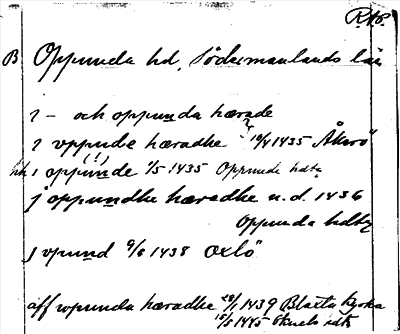 RAp.
B Oppunda hd, Södermanlands län
2 - och oppunda hærade
2 vppunde hæradhe 10/4 1435 Åkerö
hk i oppunde (!) 1/5 1435 Oppunda hdtg
j oppundhe hæradhe u.d. 1436
Oppunda hdtg
j vpund 9/6 1438 Oxlö
aff wpunda hæradhe 28/1 1439 Blaxta kyrka
15/5 1445